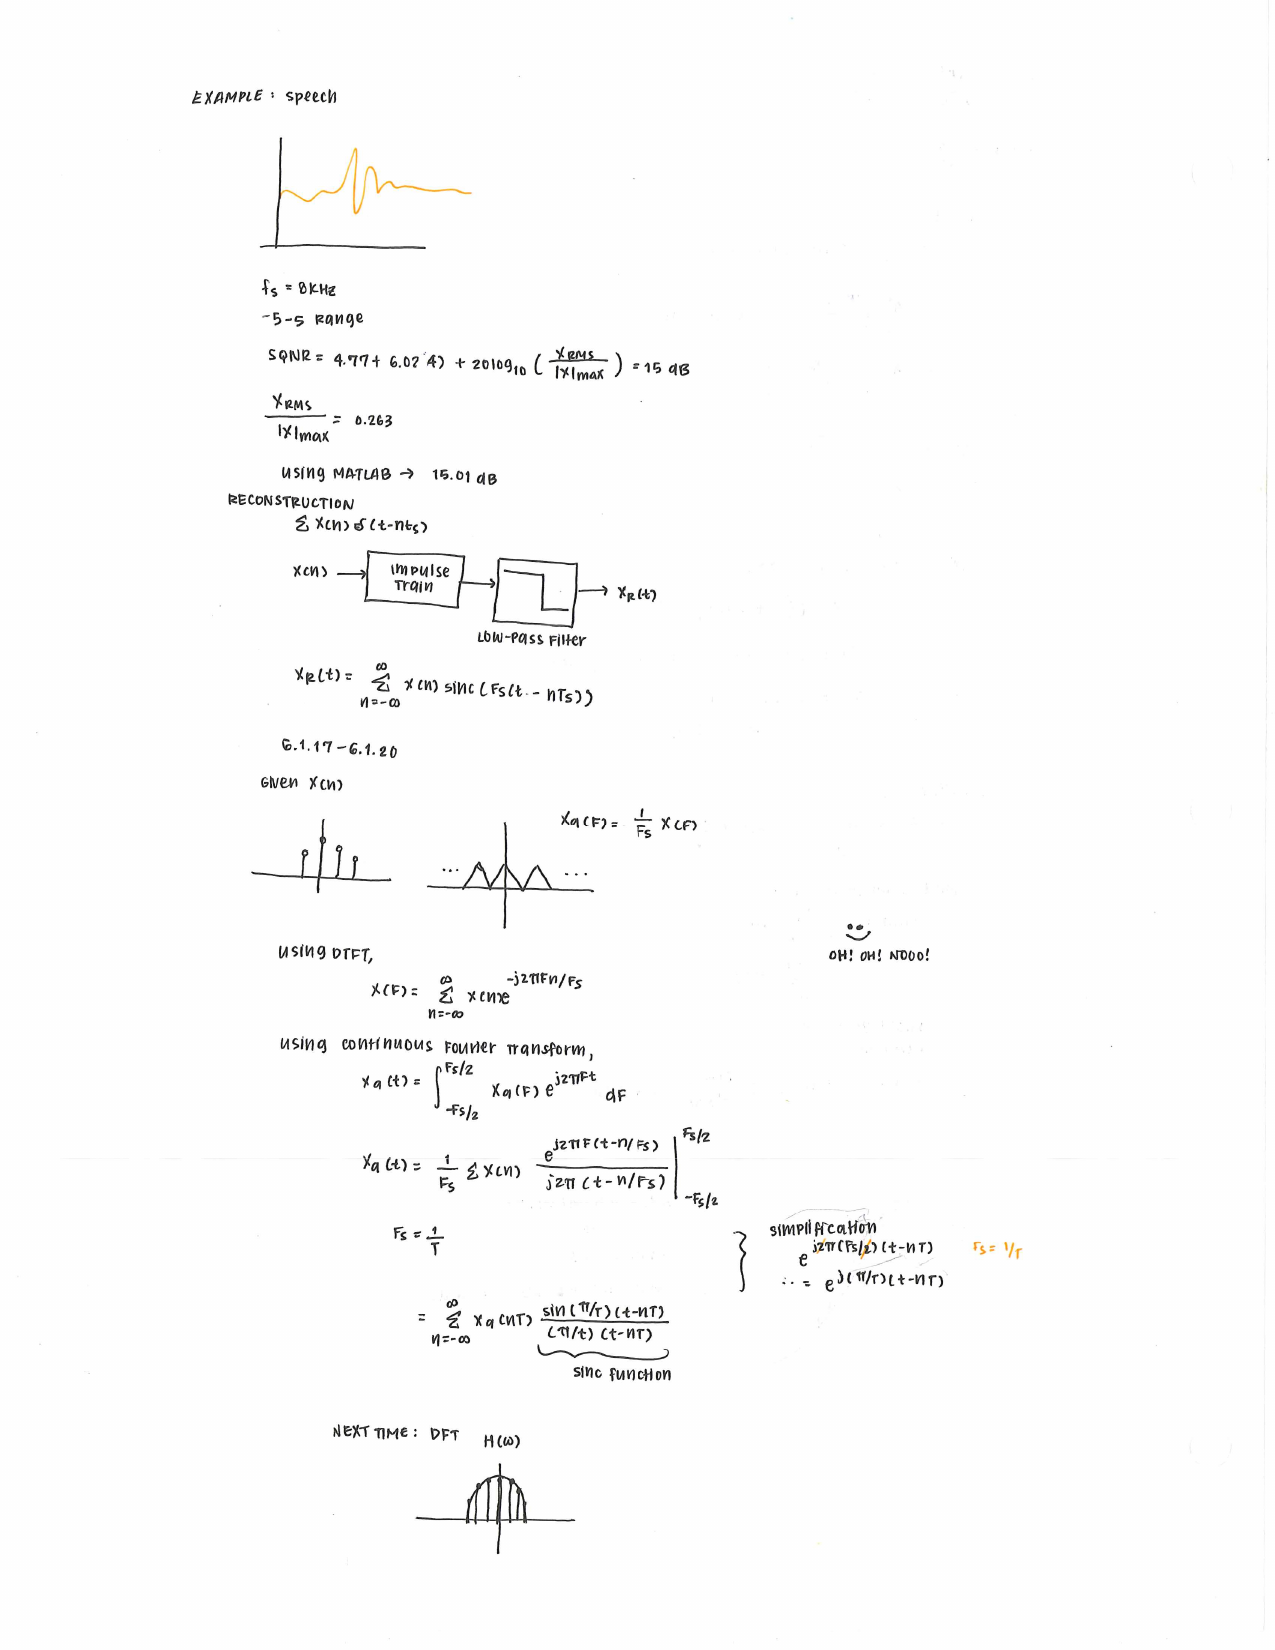 EXAMPLE : speech
fs = 8KHz
-5-5 Range
SQNR = 4.77+ 6.02 4) + 20log10 ( XRMS / |X|max ) = 15 dB
XRMS / |X|max = 0.263
using MATLAB → 15.01 dB
RECONSTRUCTION
Σ X(n) δ(t-nts)
X(n) → Impulse Train → → XR(t)
Low-Pass Filter
XR(t) = Σ n=-∞ ∞ X(n) sinc(Fs(t - nTs))
6.1.17-6.1.20
Given X(n)
Xa(F) = 1/Fs X(F)
... ...
using DTFT,
OH! OH! NOOO!
X(F) = Σ n=-∞ ∞ x(n)e^-j2πFn/Fs
using continuous Fourier Transform,
Xa(t) = ∫ -Fs/2 Fs/2 Xa(F) e^j2πFt dF
Xa(t) = 1/Fs Σ X(n) e^j2πF(t-n/Fs) / j2π(t-n/Fs) | Fs/2 -Fs/2
Fs = 1/T
simplification
e^j2π(Fs/2)(t-nT) Fs = 1/T
∴ = e^j(π/T)(t-nT)
= Σ n=-∞ ∞ Xa(nT) sin(π/T)(t-nT) / (π/t)(t-nT)
sinc function
NEXT TIME : DFT H(ω)